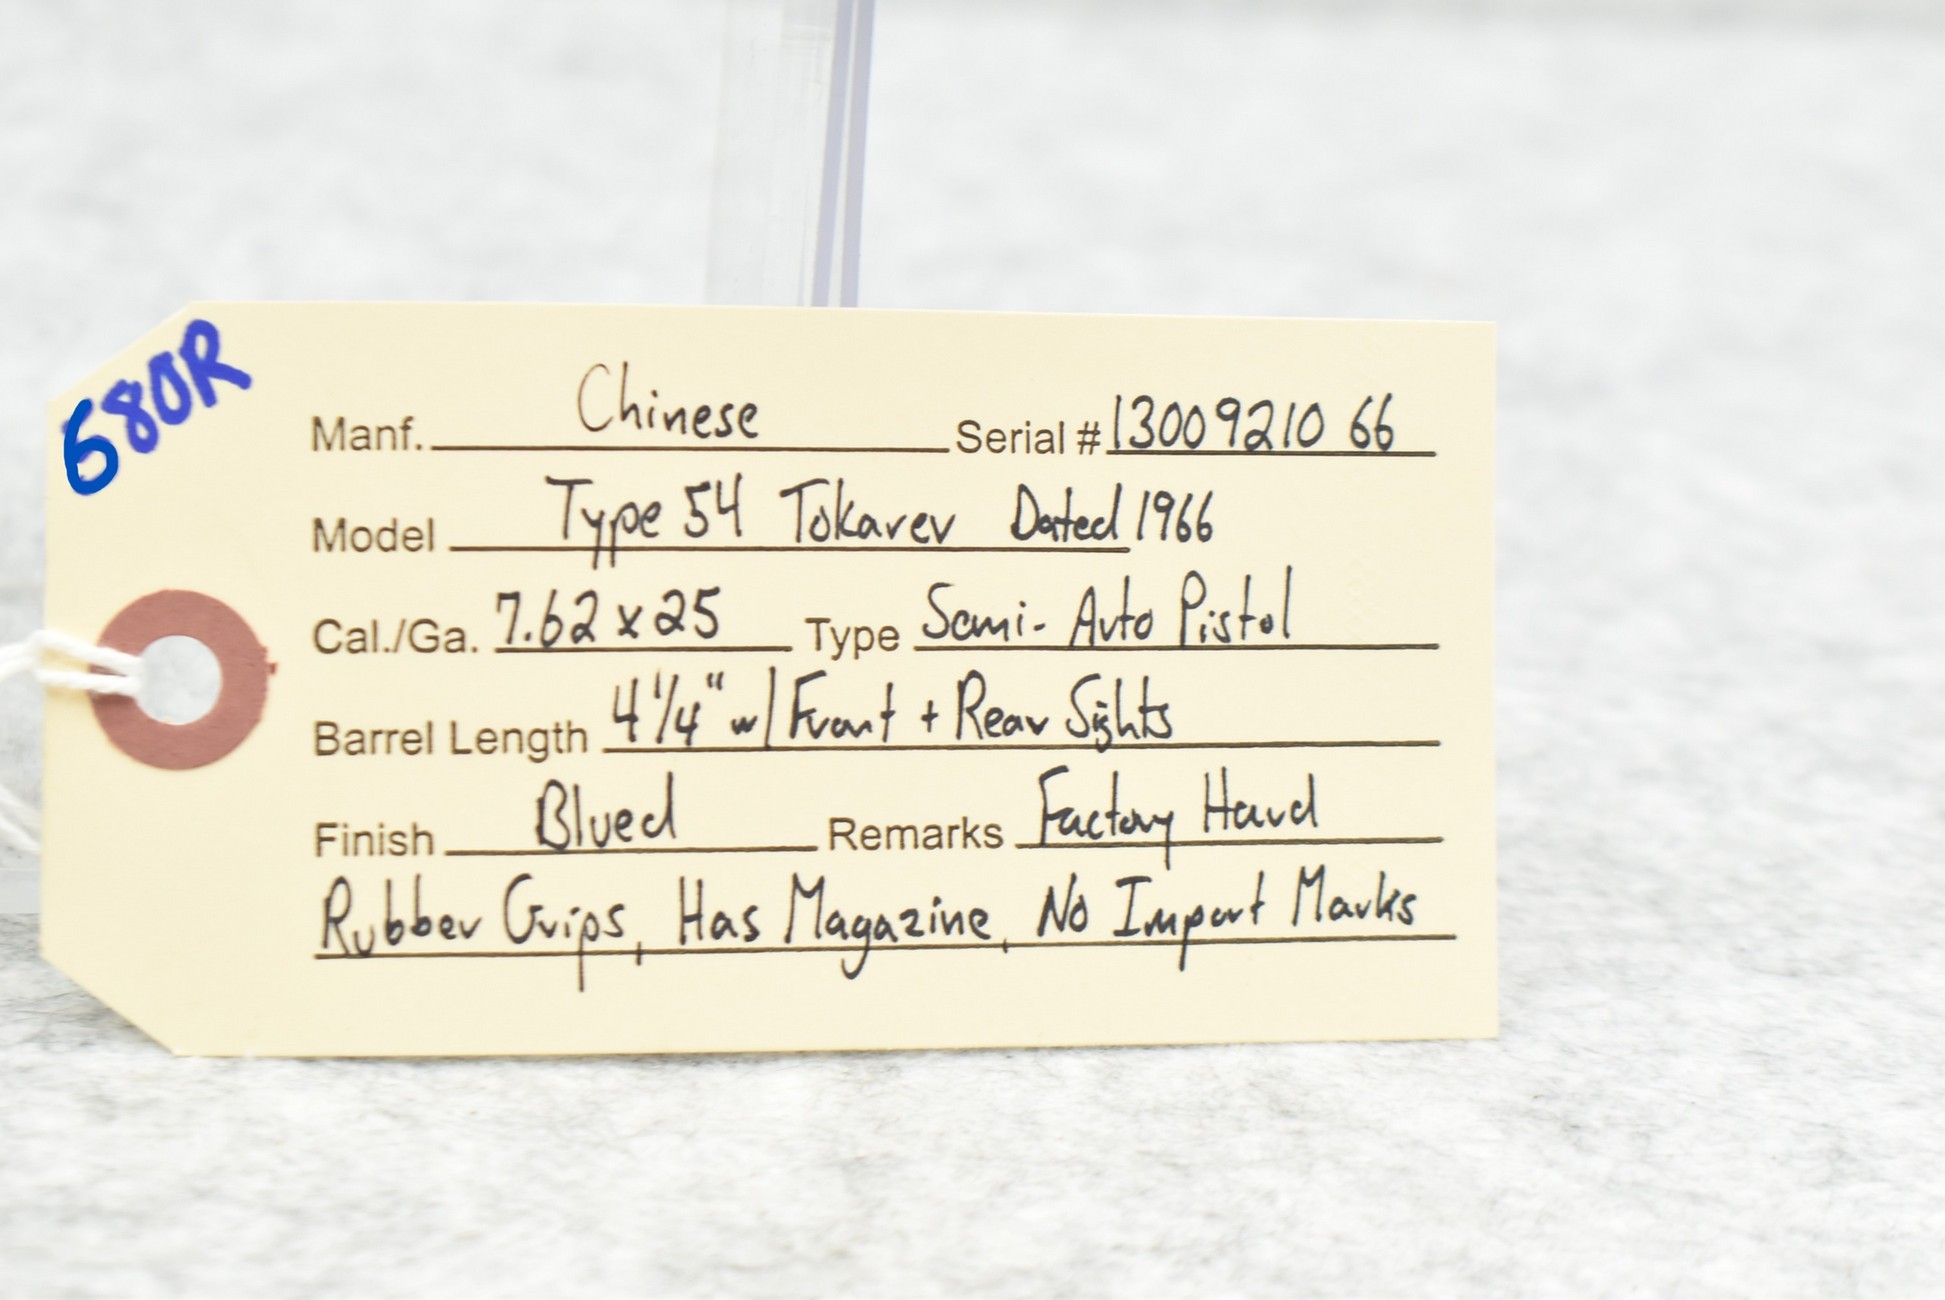 680R
Manf. Chinese Serial # 13009210 66
Model Type 54 Tokarev Dated 1966
Cal./Ga. 7.62 x 25 Type Semi-Auto Pistol
Barrel Length 4 1/4" w/ Front + Rear Sights
Finish Blued Remarks Factory Hard
Rubber Grips, Has Magazine, No Import Marks